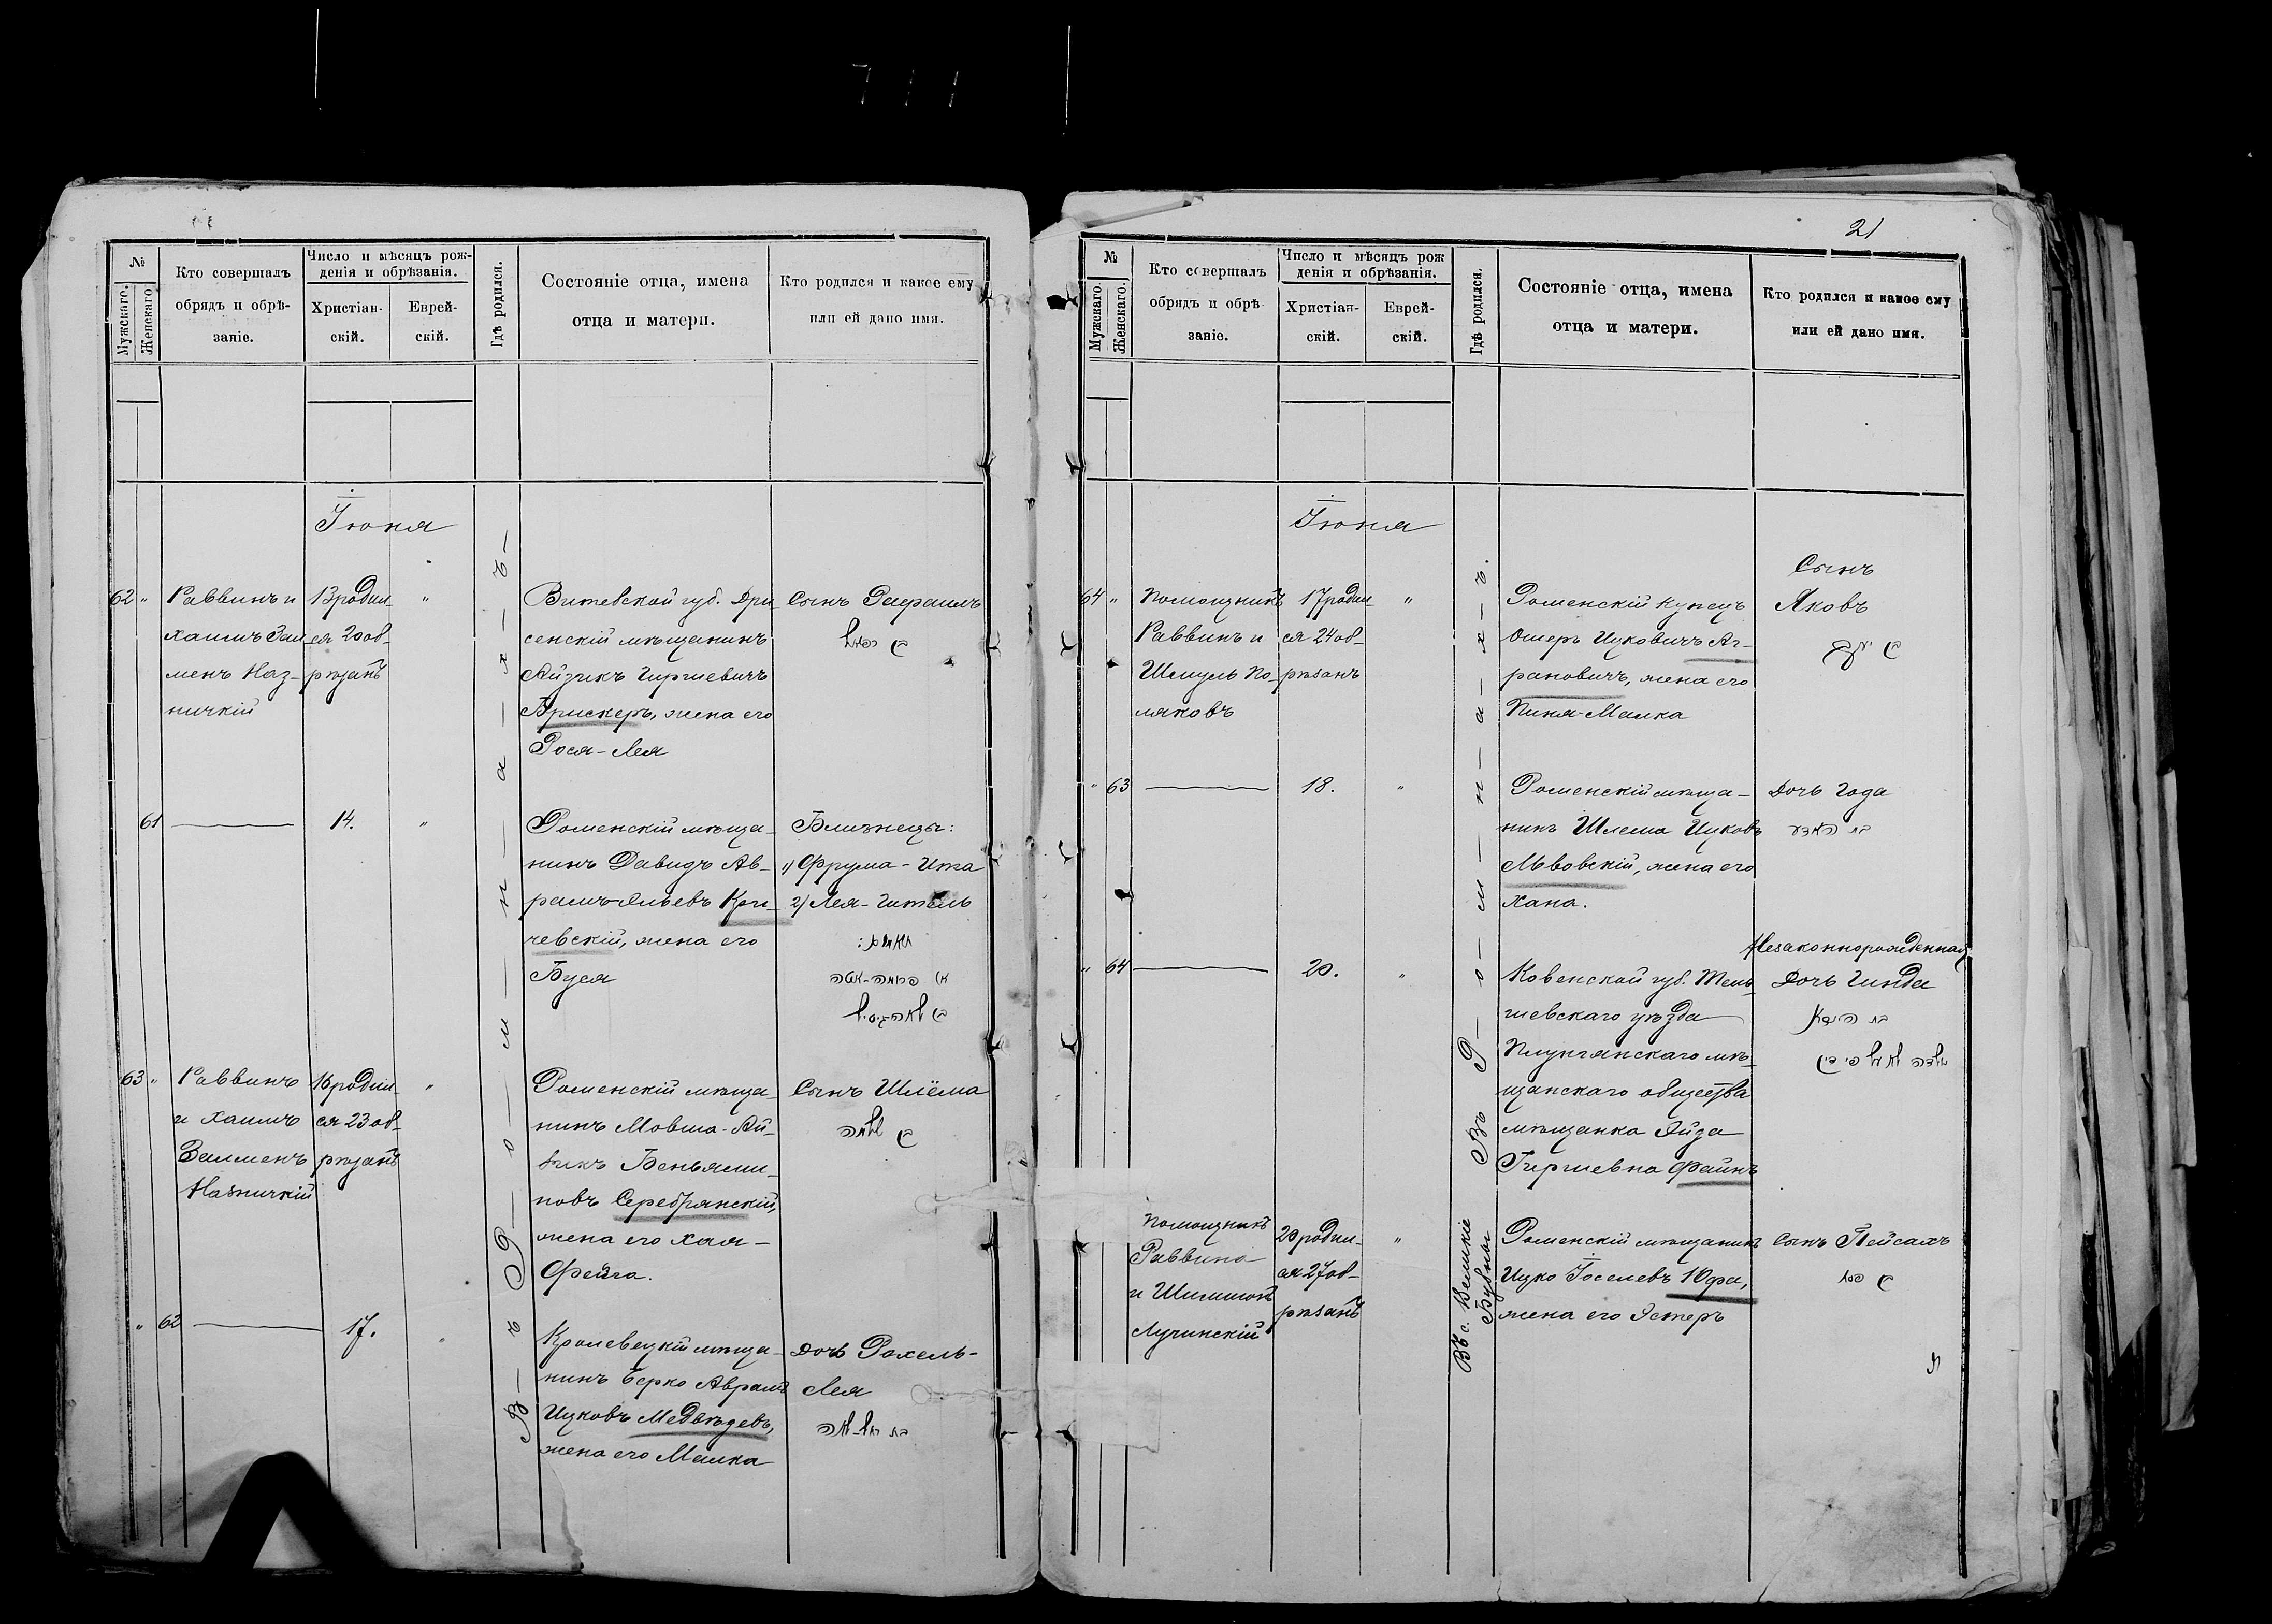 №
Мужскаго.
Женскаго
Кто совершалъ
обрядъ и обрѣ-
заніе.
Число и мѣсяцъ рож-
денія и обрѣзанія.
Христіан-
скій.
Еврей-
скій.
Гдѣ родился.
Состояніе отца, имена
отца и матери.
Кто родился и какое ему
или ей дано имя.
Іюня
В-ъ Р-о-м-н-а-х-ъ-
62 "
Раввинъ и
Хаимъ Зал-
менъ Наз-
ничкій
13 родил-
ся 20 об-
рѣзанъ
"
Витебской губ. Дри
сенскій мѣщанинъ
Айзикъ Гиршевичъ
Брискеръ, жена его
Рося-Лея
Сынъ Рафаилъ
בן רפאל
61
14.
"
Роменскій мѣща-
нинъ Давидъ Ав-
рамъ-Ильевъ Кри-
чевскій, жена его
Буся
Близнецы:
1) Фрума-Ита
2) Лея-Гитель
63 "
Раввинъ
и Хаимъ
Залменъ
Назничкій
16 родил-
ся 23 об-
рѣзанъ
"
Роменскій мѣща-
нинъ Мовша-Ай-
зикъ Беньями-
новъ Серебрянскій,
жена его Хая-
Фейга.
Сынъ Шлёма
בן שלמה
" 62
17.
"
Кролевецкій мѣща-
нинъ Берко Аврамъ
Ицковъ Медвѣдевъ,
жена его Малка
Дочь Рохель-
Лея
בת רחל-לאה
21
№
Мужскаго
Женскаго.
Кто совершалъ
обрядъ и обрѣ
заніе.
Число и мѣсяцъ рож
денія и обрѣзанія.
Христіан-
скій.
Еврей-
скій.
Гдѣ родился.
Состояніе отца, имена
отца и матери.
Кто родился и какое ему
или ей дано имя.
Іюня
Въ Р-о-м-н-а-х-ъ.
64 "
Помощникъ
Раввина и
Шмуль По-
ляковъ
17 родил
ся 24 об-
рѣзанъ
"
Роменскій купецъ
Ошеръ Ицковичъ Аг-
рановичъ, жена его
Пиня-Малка
Сынъ
Яковъ
בן יעקב
" 63
18.
"
Роменскій мѣща-
нинъ Шлема Ицковъ
Львовскій, жена его
Хана.
Дочь Года
" 64
20.
"
Ковенской губ. Тель-
шевскаго уѣзда
Плунгянскаго мѣ-
щанскаго общества
мѣщанка Эйда
Гиршевна Файнъ
Незаконнорожденная
Дочь Гинда
Помощникъ
Раввина
и Шимшонъ
Лучинскій
20 родил-
ся 27 об-
рѣзанъ
"
Въ с. Великіе
Бубны
Роменскій мѣщанинъ
Ицко Іоселевъ Юфа,
жена его Эстеръ
Сынъ Пейсахъ
בן פסח